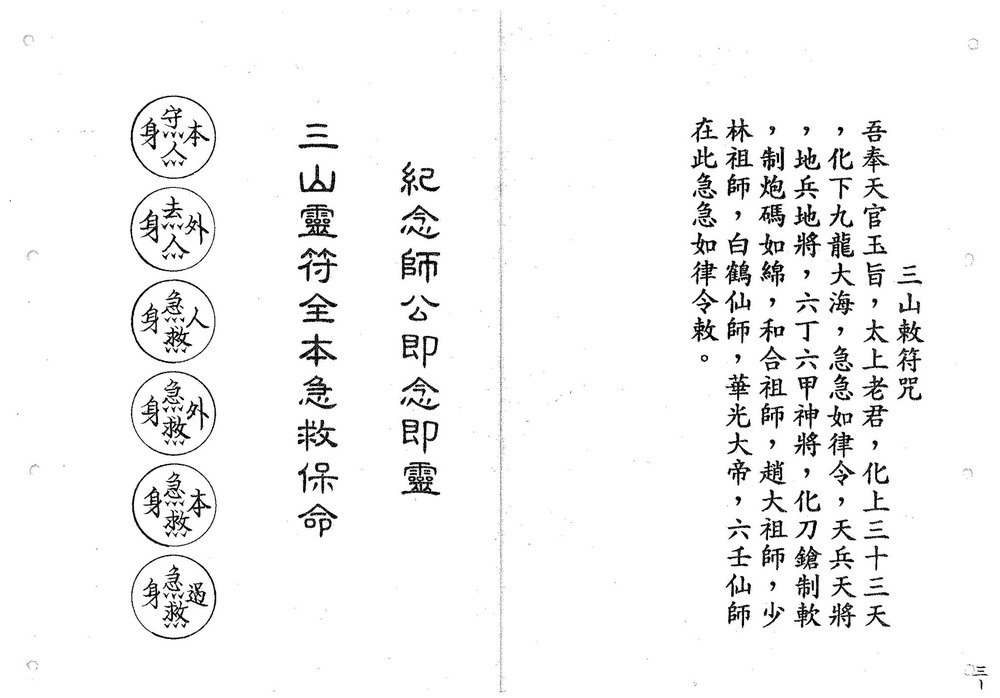 三山敕符咒
吾奉天官玉旨，太上老君，化上三十三天
，化下九龍大海，急急如律令，天兵天將
，地兵地將，六丁六甲神將，化刀鎗制軟
，制炮碼如綿，和合祖師，趙大祖師，少
林祖師，白鶴仙師，華光大帝，六壬仙師
在此急急如律令敕。
紀念師公即念即靈
三山靈符全本急救保命
本守人身
外去人身
人急救身
外急救身
本急救身
過急救身
三